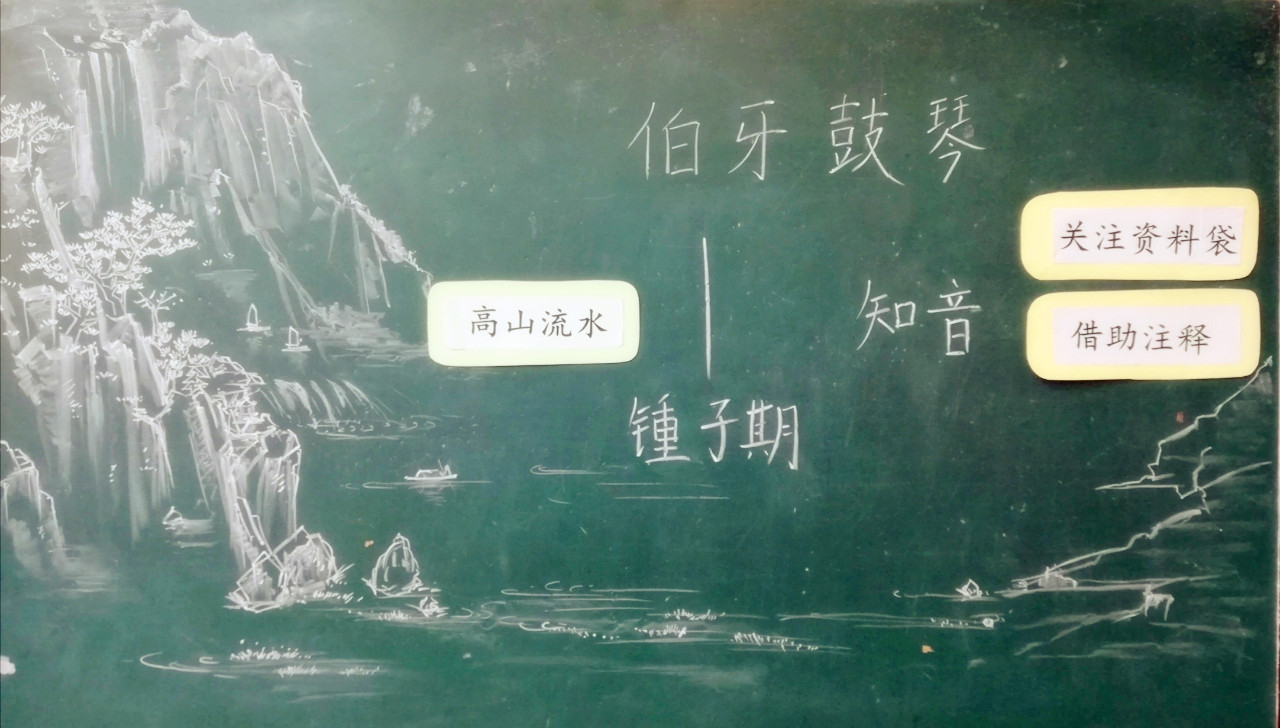 伯牙鼓琴
关注资料袋
高山流水
知音
借助注释
锺子期